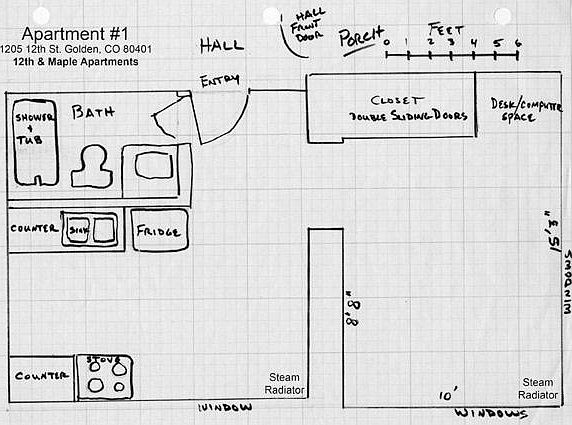 Apartment #1
1205 12th St. Golden, CO 80401
12th & Maple Apartments
HALL
HALL
FRONT
DOOR
PORCH
FEET
0 1 2 3 4 5 6
ENTRY
BATH
SHOWER
+
TUB
CLOSET
DOUBLE SLIDING DOORS
DESK/COMPUTER
SPACE
COUNTER
SINK
FRIDGE
8'8"
WINDOWS
COUNTER
STOVE
Steam
Radiator
WINDOW
10'
Steam
Radiator
WINDOWS